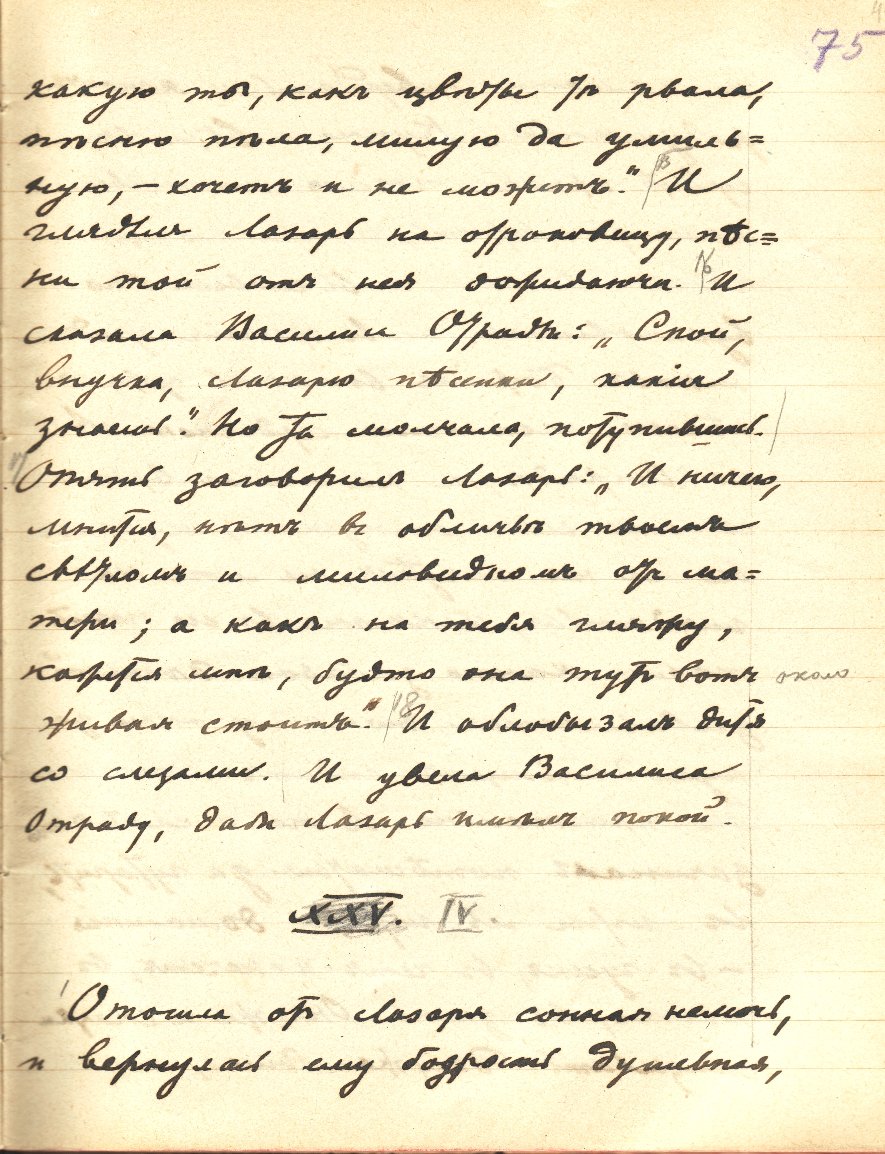 75
какую ты, какъ цвѣты тѣ рвала,
пѣсню пѣла, милую да умиль=
ную, — хочетъ и не можетъ." 15 И
глядѣлъ Лазарь на отроковицу, пѣс=
ни той отъ нея дожидаючи. 16 И
сказала Василиса Отрадѣ: „Спой,
внучка, Лазарю пѣсенки, какія
знаешь". Но та молчала, потупившись.
17 Опять заговорилъ Лазарь: „И ничего,
мнится, нѣтъ въ обличьѣ твоемъ
свѣтломъ и миловидномъ отъ ма=
тери; а какъ на тебя гляжу,
кажется мнѣ, будто она тутъ вотъ около
живая стоитъ." 18 И облобызалъ дитя
со слезами. И увела Василиса
Отраду, дабы Лазарь имѣлъ покой.
XXV. IV.
1 Отошла отъ Лазаря сонная немочь,
и вернулась ему бодрость душевная,